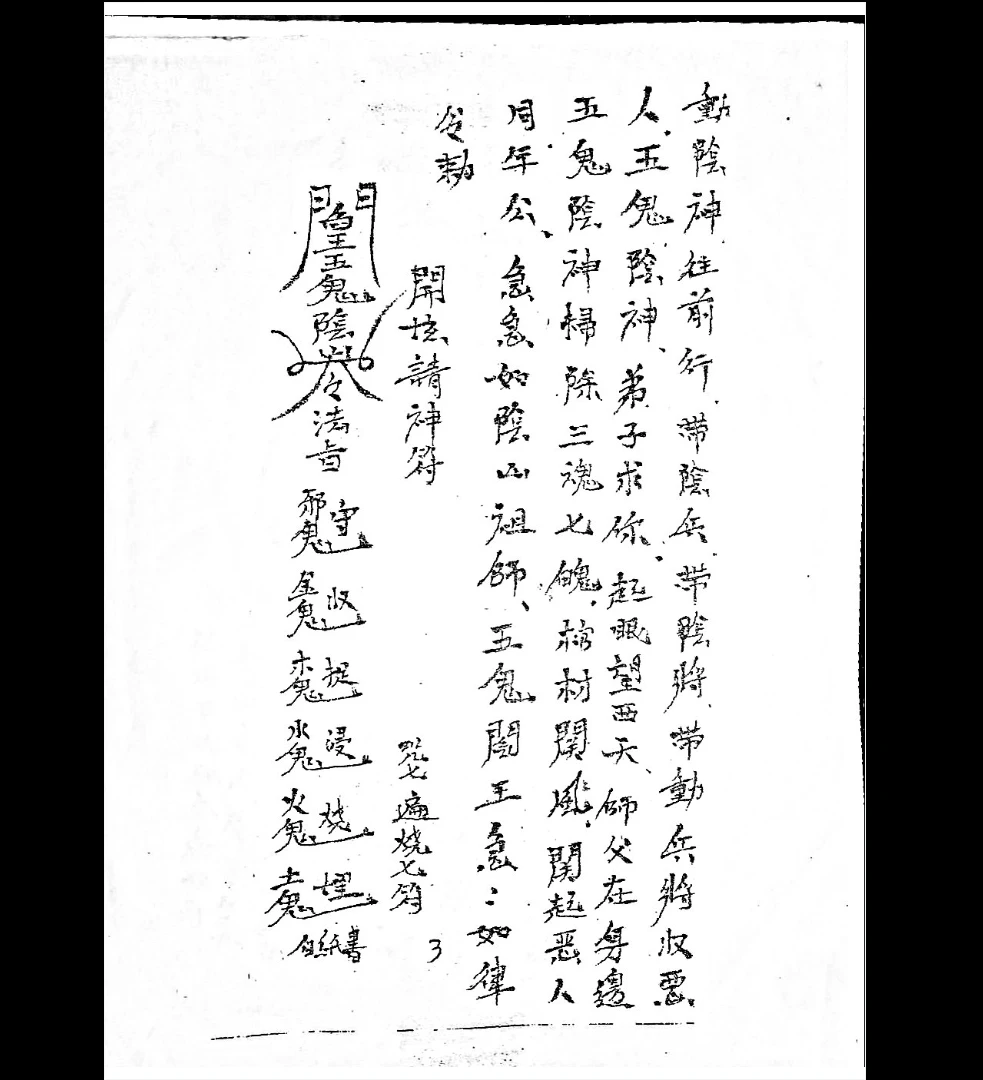 動陰神往前行、帶陰兵、帶陰將、帶動兵將收惡
人、五鬼陰神、弟子求你、起眼望西天、師父在身邊
五鬼陰神掃除三魂七魄、棺材関風、関起惡人
同年公、急急如陰山祖師、五鬼閻王急:如律
令勅
開坛請神符
咒七遍燒七符
3
五鬼陰
法旨
邪鬼守
金鬼收
木鬼捉
水鬼浸
火鬼燒
土鬼埋
白紙書